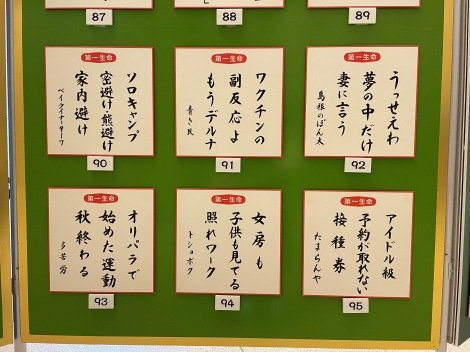 87
88
89
第一生命
ソロキャンプ
密避け・熊避け
家内避け
90
第一生命
ワクチンの
副反応よ
もうデルナ
青き民
91
第一生命
うっせえわ
夢の中だけ
妻に言う
島根のぽん太
92
第一生命
オリパラで
始めた運動
秋終わる
93
第一生命
女房も
子供も見てる
照れワーク
トショボク
94
第一生命
アイドル級
予約が取れない
接種券
たまらんや
95